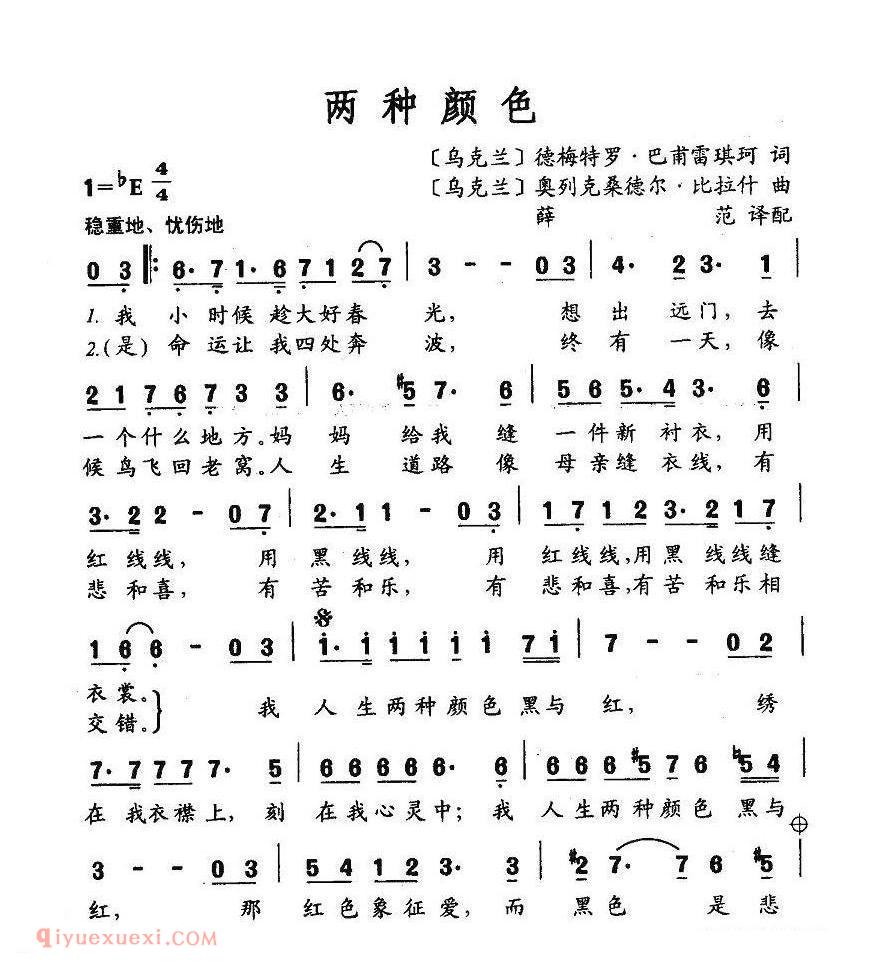 两种颜色
〔乌克兰〕德梅特罗·巴甫雷琪珂 词
1=♭E 4/4
〔乌克兰〕奥列克桑德尔·比拉什 曲
稳重地、忧伤地
薛 范 译配
0 3 ‖: 6· 7 1· 6 7 1 2 7 | 3 - - 0 3 | 4· 2 3· 1 |
1. 我 小 时候 趁大好春 光, 想 出 远门,去
2.(是) 命 运让 我四处奔 波, 终 有 一天,像
2 1 7 6 7 3 3 | 6· #5 7· 6 | 5 6 5· 4 3· 6 |
一个什么地方。妈 妈 给我 缝 一件新 衬衣,用
候鸟飞回老窝。人 生 道路 像 母亲缝 衣线,有
3· 2 2 - 0 7 | 2· 1 1 - 0 3 | 1 7 1 2 3· 2 1 7 |
红线线, 用 黑 线线, 用 红线线,用黑 线线缝
悲和喜, 有 苦 和乐, 有 悲和喜,有苦 和乐相
1 6 6 - 0 3 | i· i i i i i 7 i | 7 - - 0 2 |
衣裳。 我 人 生两种颜色黑与 红, 绣
交错。
7· 7 7 7 7 7· 5 | 6 6 6 6 6 6· 6 | 6 6 6 6 #5 7 6 ♮5 4 |
在 我衣襟上,刻 在我心灵中;我 人生两种颜色 黑与
3 - - 0 3 | 5 4 1 2 3· 3 | #2 7· 7 6 #5 |
红, 那 红色象征爱,而 黑色 是悲
qiyuexuexi.com